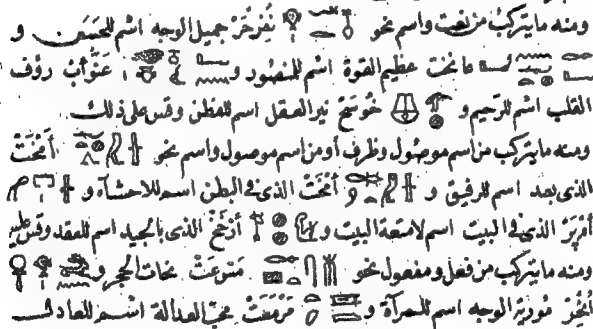 ومنه ما يتركب من نعت واسم نحو نُفِرْحَرْ جميل الوجه اسم للحَسَن و
عانخت عظيم القوة اسم للمنصور و عَنُوأبْ رؤف
القلب اسم للرحيم و خُوسَخْ نير العقل اسم للفطن وقس على ذلك
ومنه ما يتركب من اسم موصول وظرف أو من اسم موصول واسم نحو أَمْخَتْ
الذى بعد اسم للرفيق و أمْخَتْ الذى فى البطن اسم للاحشاء و
أمْپَرْ الذى فى البيت اسم لامتعة البيت و أرْخَخْ الذى بالجيد اسم للعقد وقس عليه
ومنه ما يتركب من فعل ومفعول نحو مَسْوعَتْ نحات الحجر و
أنْخِرْ مُورية الوجه اسم للمرآة و مَرْمَعَتْ محب العدالة اسم للعادل